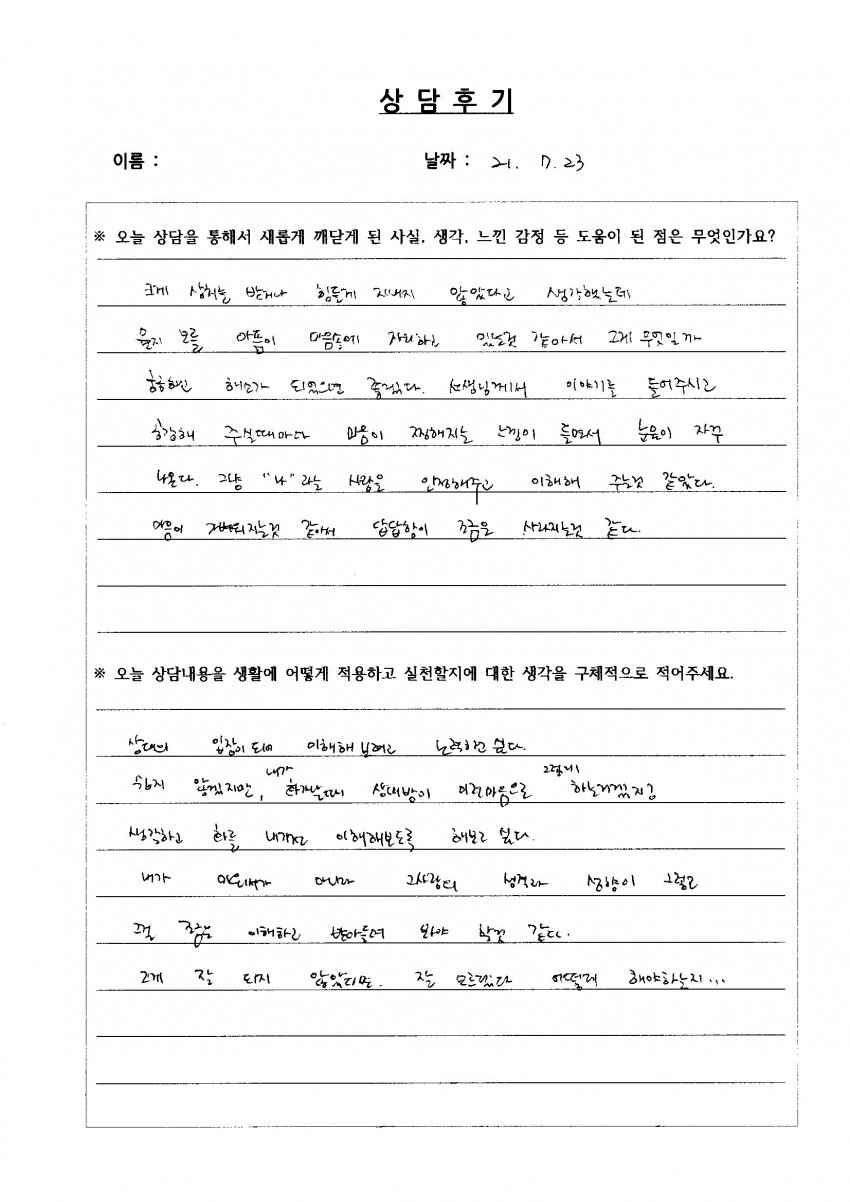 상 담 후 기
이름 :
날짜 : 21. 7. 23
※ 오늘 상담을 통해서 새롭게 깨닫게 된 사실, 생각, 느낀 감정 등 도움이 된 점은 무엇인가요?
크게 상처를 받거나 힘들게 지내지 않았다고 생각했는데
모를 아픔이 마음속에 자리하고 있는것 같아서 그게 무엇일까
해소가 되었으면 좋겠다. 선생님께서 이야기를 들어주시고
공감해 주실때마다 마음이 찡해지는 느낌이 들면서 눈물이 자꾸
나온다. 그냥 "나"라는 사람을 인정해주고 이해해 주는것 같았다.
마음이 같아서 답답함이 조금은 사라지는것 같다.
※ 오늘 상담내용을 생활에 어떻게 적용하고 실천할지에 대한 생각을 구체적으로 적어주세요.
상대의 입장이 되어 이해해 보려고 노력하고 싶다.
쉽지 않겠지만, 내가 화가날때 상대방이 이런마음으로 그랬니 하는거겠지라
생각하고 화를 이해해보도록 해보고 싶다.
내가 아니라 그사람의 성격과 성향이 그렇고
그걸 조금은 이해하고 받아들여 봐야 할것 같다.
그게 잘 되지 않았지만. 잘 모르겠다 어떻게 해야하는지...